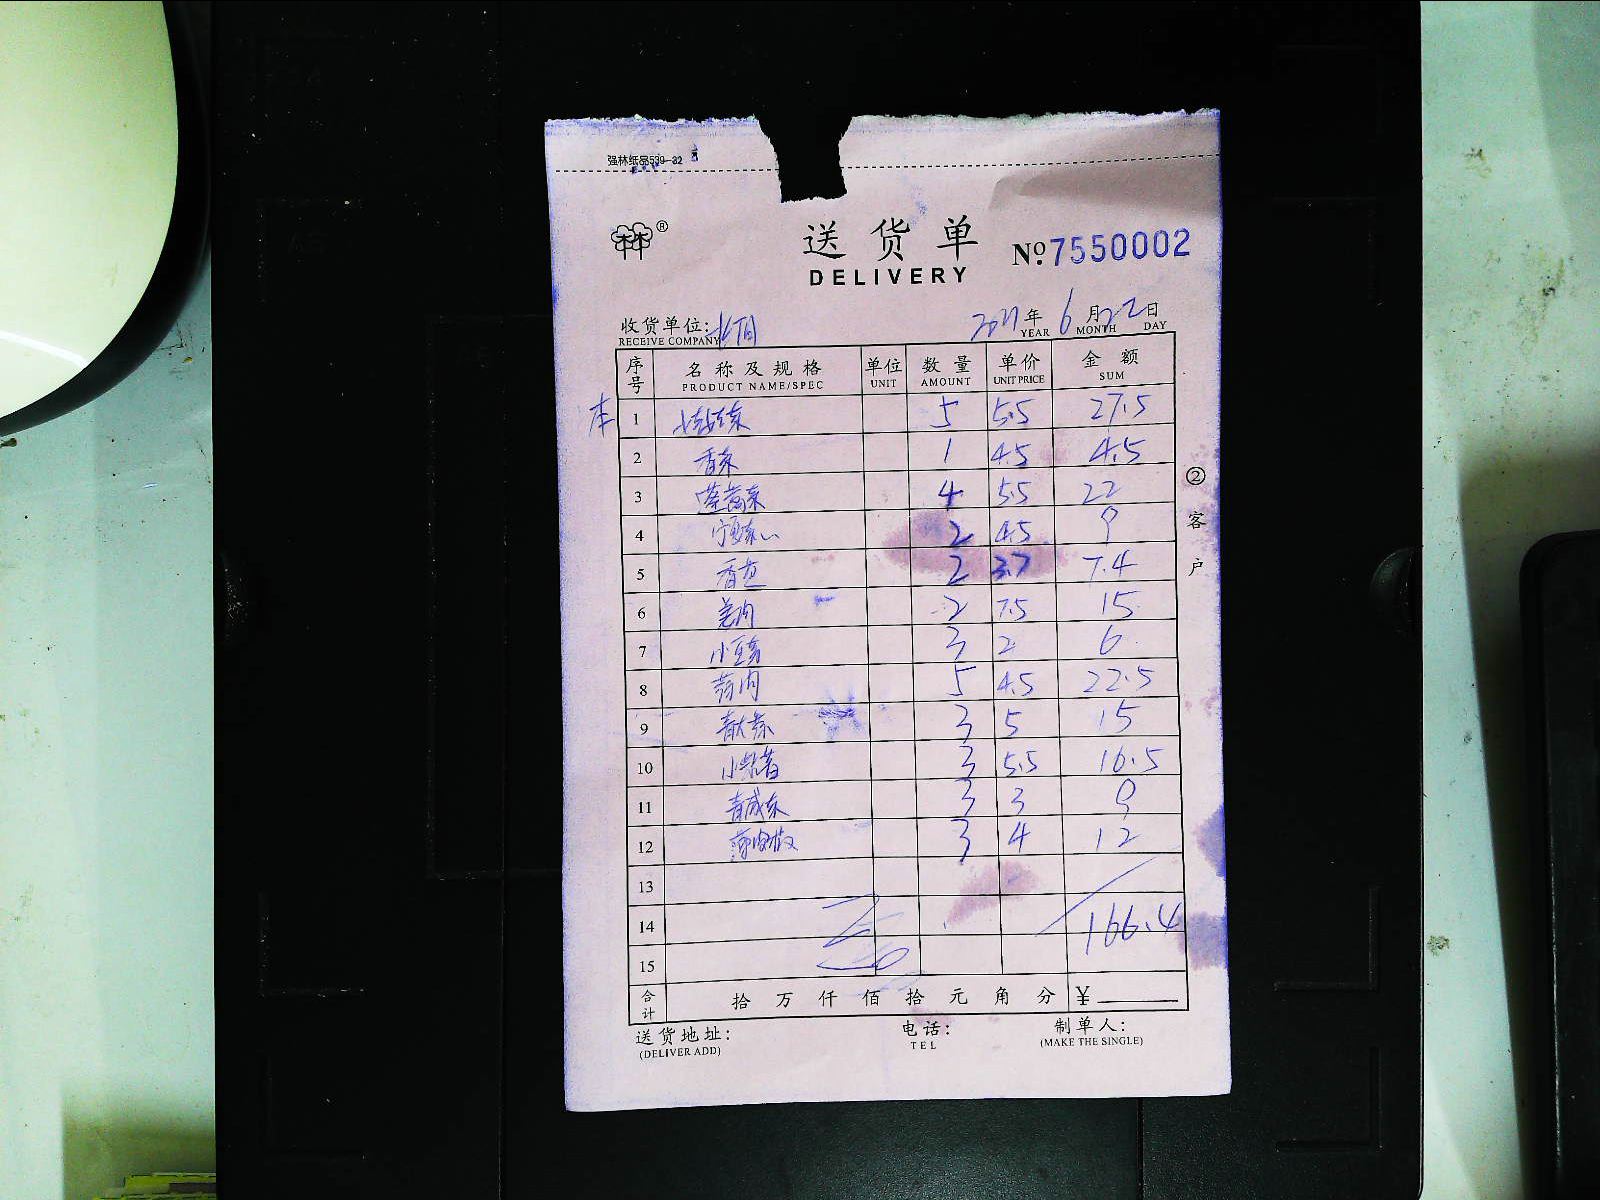 强林纸品539-32
林®
送货单 №7550002
DELIVERY
收货单位: 年 6 月 22 日
RECEIVE COMPANY YEAR MONTH DAY
序号 名称及规格 单位 数量 单价 金额
PRODUCT NAME/SPEC UNIT AMOUNT UNIT PRICE SUM
本 1 5 5.5 27.5
2 香菜 1 4.5 4.5
3 茼蒿菜 4 5.5 22
4 2 4.5 9
5 香芹 2 3.7 7.4
6 姜肉 2 7.5 15
7 3 2 6
8 蒜肉 5 4.5 22.5
9 3 5 15
10 3 5.5 16.5
11 3 3 9
12 薄皮椒 3 4 12
13
14 166.4
15
合计 拾 万 仟 佰 拾 元 角 分 ¥
② 客户
送货地址: 电话: 制单人:
(DELIVER ADD) TEL (MAKE THE SINGLE)